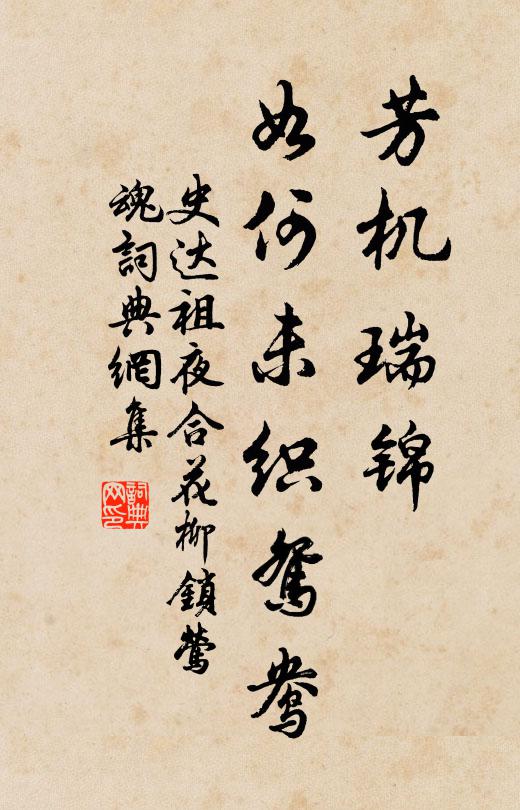 芳机瑞锦
如何未织鸳鸯
史达祖夜合花柳鎖莺
魂詞典網集
詞典网印